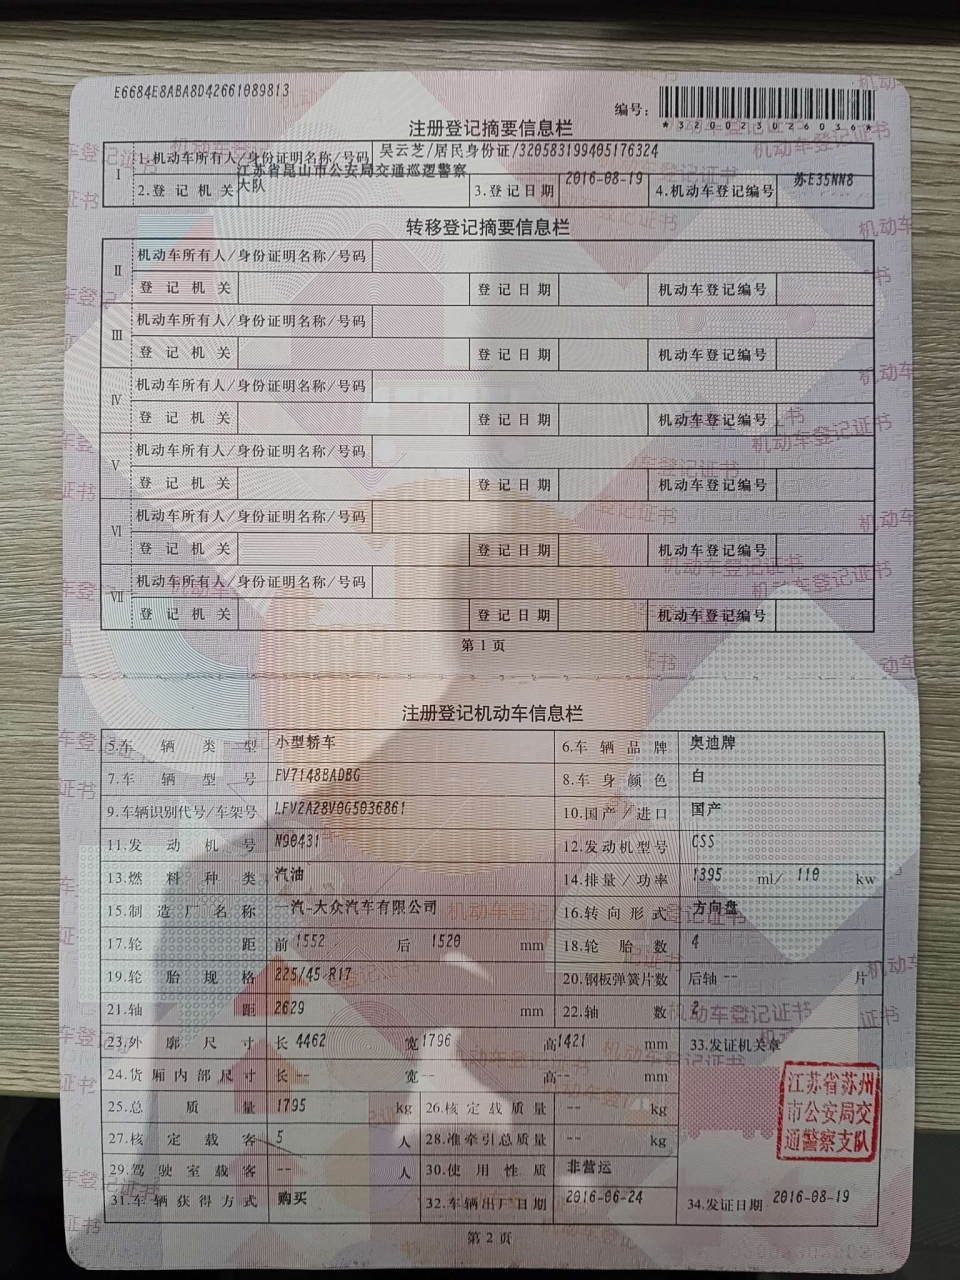 E6684E8ABA8D42661089813
编号：
*320023026036*
注册登记摘要信息栏
I 1.机动车所有人/身份证明名称/号码 吴云芝/居民身份证/320583199405176324
2.登记机关 江苏省昆山市公安局交通巡逻警察大队 3.登记日期 2016-08-19 4.机动车登记编号 苏E35NN8
转移登记摘要信息栏
II 机动车所有人/身份证明名称/号码
登记机关 登记日期 机动车登记编号
III 机动车所有人/身份证明名称/号码
登记机关 登记日期 机动车登记编号
IV 机动车所有人/身份证明名称/号码
登记机关 登记日期 机动车登记编号
V 机动车所有人/身份证明名称/号码
登记机关 登记日期 机动车登记编号
VI 机动车所有人/身份证明名称/号码
登记机关 登记日期 机动车登记编号
VII 机动车所有人/身份证明名称/号码
登记机关 登记日期 机动车登记编号
第1页
注册登记机动车信息栏
5.车辆类型 小型轿车 6.车辆品牌 奥迪牌
7.车辆型号 FV7148BADBG 8.车身颜色 白
9.车辆识别代号/车架号 LFV2A28V0G5036861 10.国产/进口 国产
11.发动机号 N90431 12.发动机型号 CSS
13.燃料种类 汽油 14.排量/功率 1395 ml/ 110 kw
15.制造厂名称 一汽-大众汽车有限公司 16.转向形式 方向盘
17.轮距 前 1552 后 1520 mm 18.轮胎数 4
19.轮胎规格 225/45 R17 20.钢板弹簧片数 后轴 -- 片
21.轴距 2629 mm 22.轴数 2
23.外廓尺寸 长 4462 宽 1796 高 1421 mm 33.发证机关章
24.货厢内部尺寸 长 -- 宽 -- 高 -- mm
25.总质量 1795 kg 26.核定载质量 -- kg
27.核定载客 5 人 28.准牵引总质量 -- kg
29.驾驶室载客 -- 人 30.使用性质 非营运
31.车辆获得方式 购买 32.车辆出厂日期 2016-06-24 34.发证日期 2016-08-19
江苏省苏州
市公安局交
通警察支队
第2页